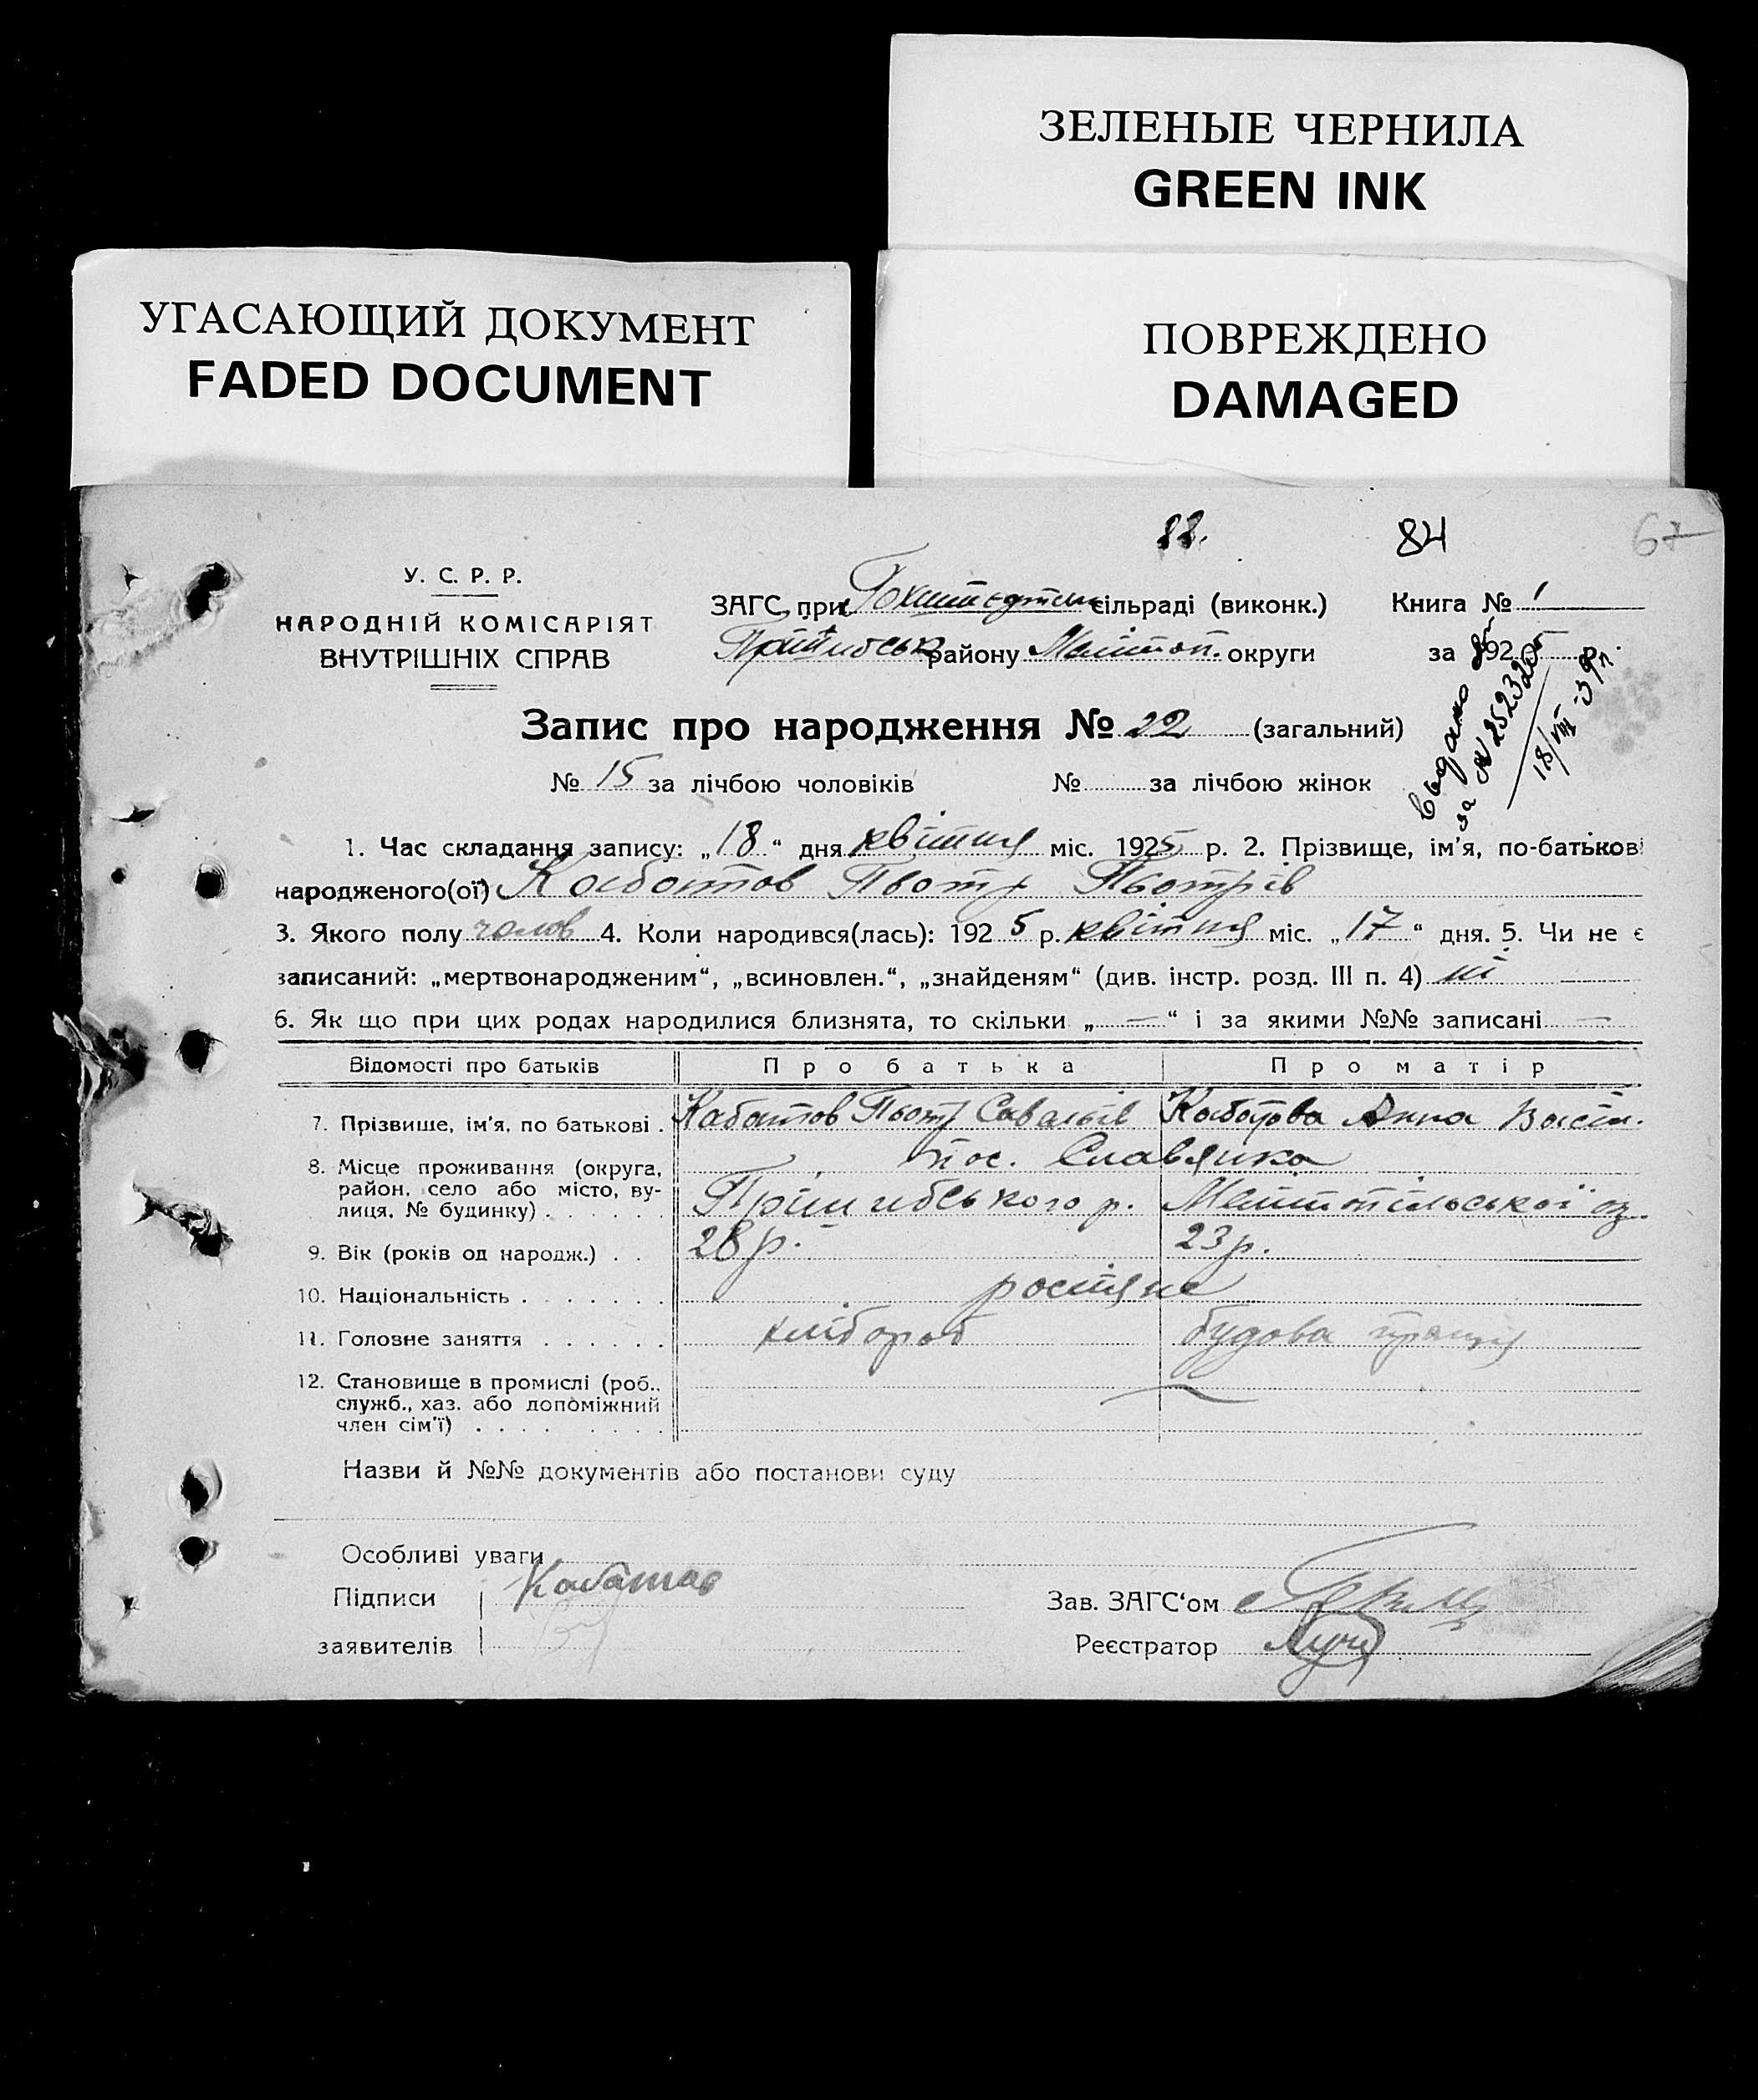 ЗЕЛЕНЫЕ ЧЕРНИЛА
GREEN INK
УГАСАЮЩИЙ ДОКУМЕНТ
FADED DOCUMENT
ПОВРЕЖДЕНО
DAMAGED
88. 84 67
У. С. Р. Р.
НАРОДНІЙ КОМІСАРІЯТ
ВНУТРІШНІХ СПРАВ
ЗАГС при сільраді (виконк.) Книга № 1
Пришибськ району Мелітоп. округи за 1925 р.
видано
за № 252325
18/VIII-39 р.
Запис про народження № 22 (загальний)
№ 15 за лічбою чоловіків № за лічбою жінок
1. Час складання запису: „18“ дня квітня міс. 1925 р. 2. Прізвище, ім'я, по-батькові
народженого(ої) Кабатов Пьотр Пьотрів
3. Якого полу чолов 4. Коли народився(лась): 1925 р. квітня міс. „17“ дня. 5. Чи не є
записаний: „мертвонародженим“, „всиновлен.“, „знайденям“ (див. інстр. розд. III п. 4) ні
6. Як що при цих родах народилися близнята, то скільки „—“ і за якими №№ записані —
Відомості про батьків Про батька Про матір
7. Прізвише, ім'я, по батькові . Кабатов Пьотр Савельів Кабатова Анна Васіл.
8. Місце проживання (округа, район, село або місто, вулиця, № будинку) . . . . . . пос. Славянка
Пришибського р. Мелітопільської ок.
9. Вік (років од народж.) . . 28 р. 23 р.
10. Національність . . . . . . . росіяне
11. Головне заняття . . . . . . хлібороб будова праця
12. Становище в промислі (роб., служб., хаз. або допоміжний член сім'ї) . . . .
Назви й №№ документів або постанови суду
Особливі уваги
Підписи Кабатов Зав. ЗАГС'ом
заявителів Реєстратор